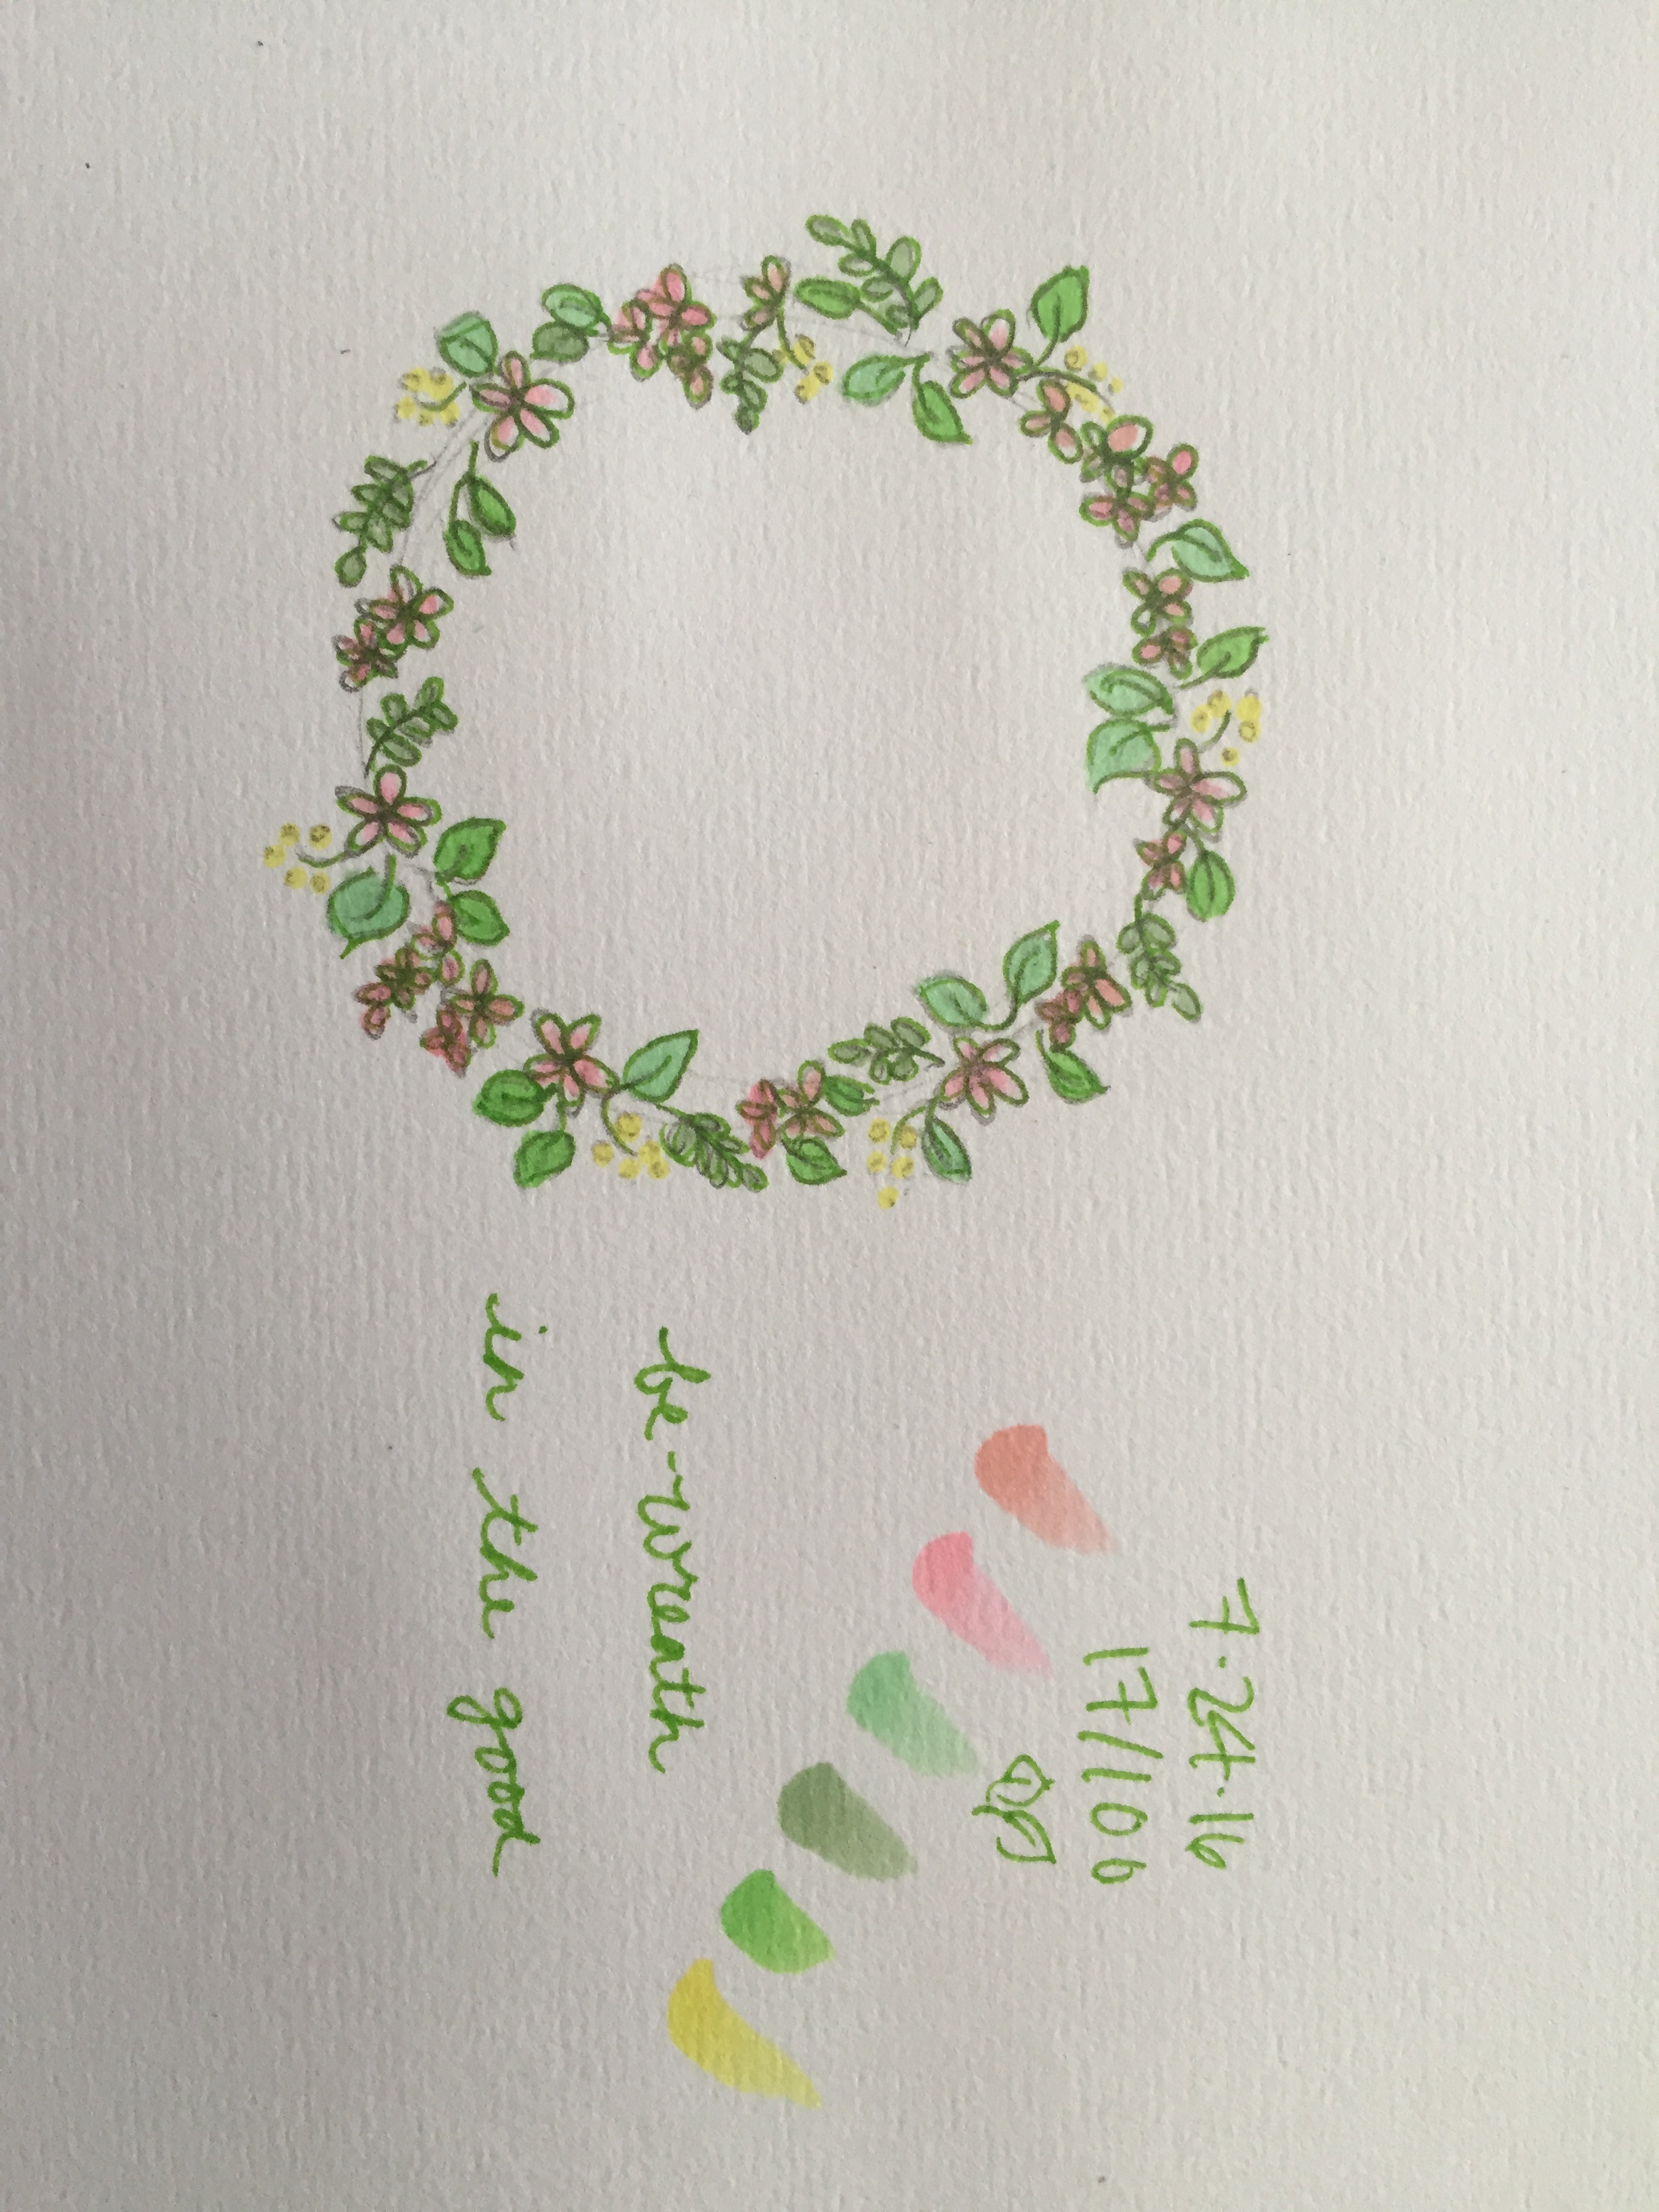 7.24.16
17/100
be-wreath
in the good